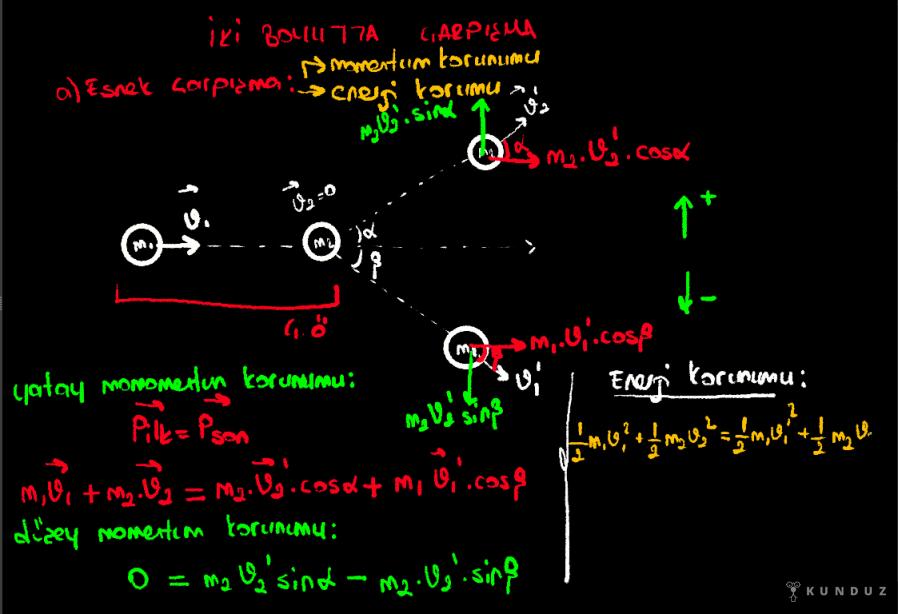 İKİ BOYUTTA ÇARPIŞMA
a) Esnek Çarpışma: → momentum korunumu
→ enerji korumu
m₂ϑ₂'·sinα
ϑ₂'
m₂
α
m₂·ϑ₂'·cosα
ϑ₁
ϑ₂=0
m₁
m₂
α
β
+
-
Ç.Ö
m₁
β
m₁·ϑ₁'·cosβ
ϑ₁'
m₂ϑ₂'sinβ
yatay momomentun korunumu:
Pilk = Pson
m₁ϑ₁ + m₂·ϑ₂ = m₂·ϑ₂'·cosα + m₁ϑ₁'·cosβ
düzey momentum korunumu:
0 = m₂ϑ₂'sinα - m₂·ϑ₂'·sinβ
Energi korunumu:
½m₁ϑ₁² + ½m₂ϑ₂² = ½m₁ϑ₁'² + ½m₂ϑ.
KUNDUZ